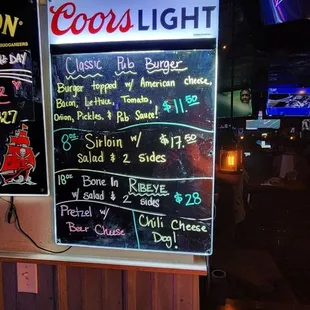 Coors LIGHT
Classic Pub Burger
Burger topped w/ American cheese,
Bacon, Lettuce, Tomato,
Onion, Pickles, & Pub Sauce!
$11.50
8oz Sirloin w/ $17.50
Salad & 2 Sides
Bone In RIBEYE
w/ salad & 2 sides $28
Pretzel w/
Beer Cheese
Chili Cheese
Dog!
ON
DAY